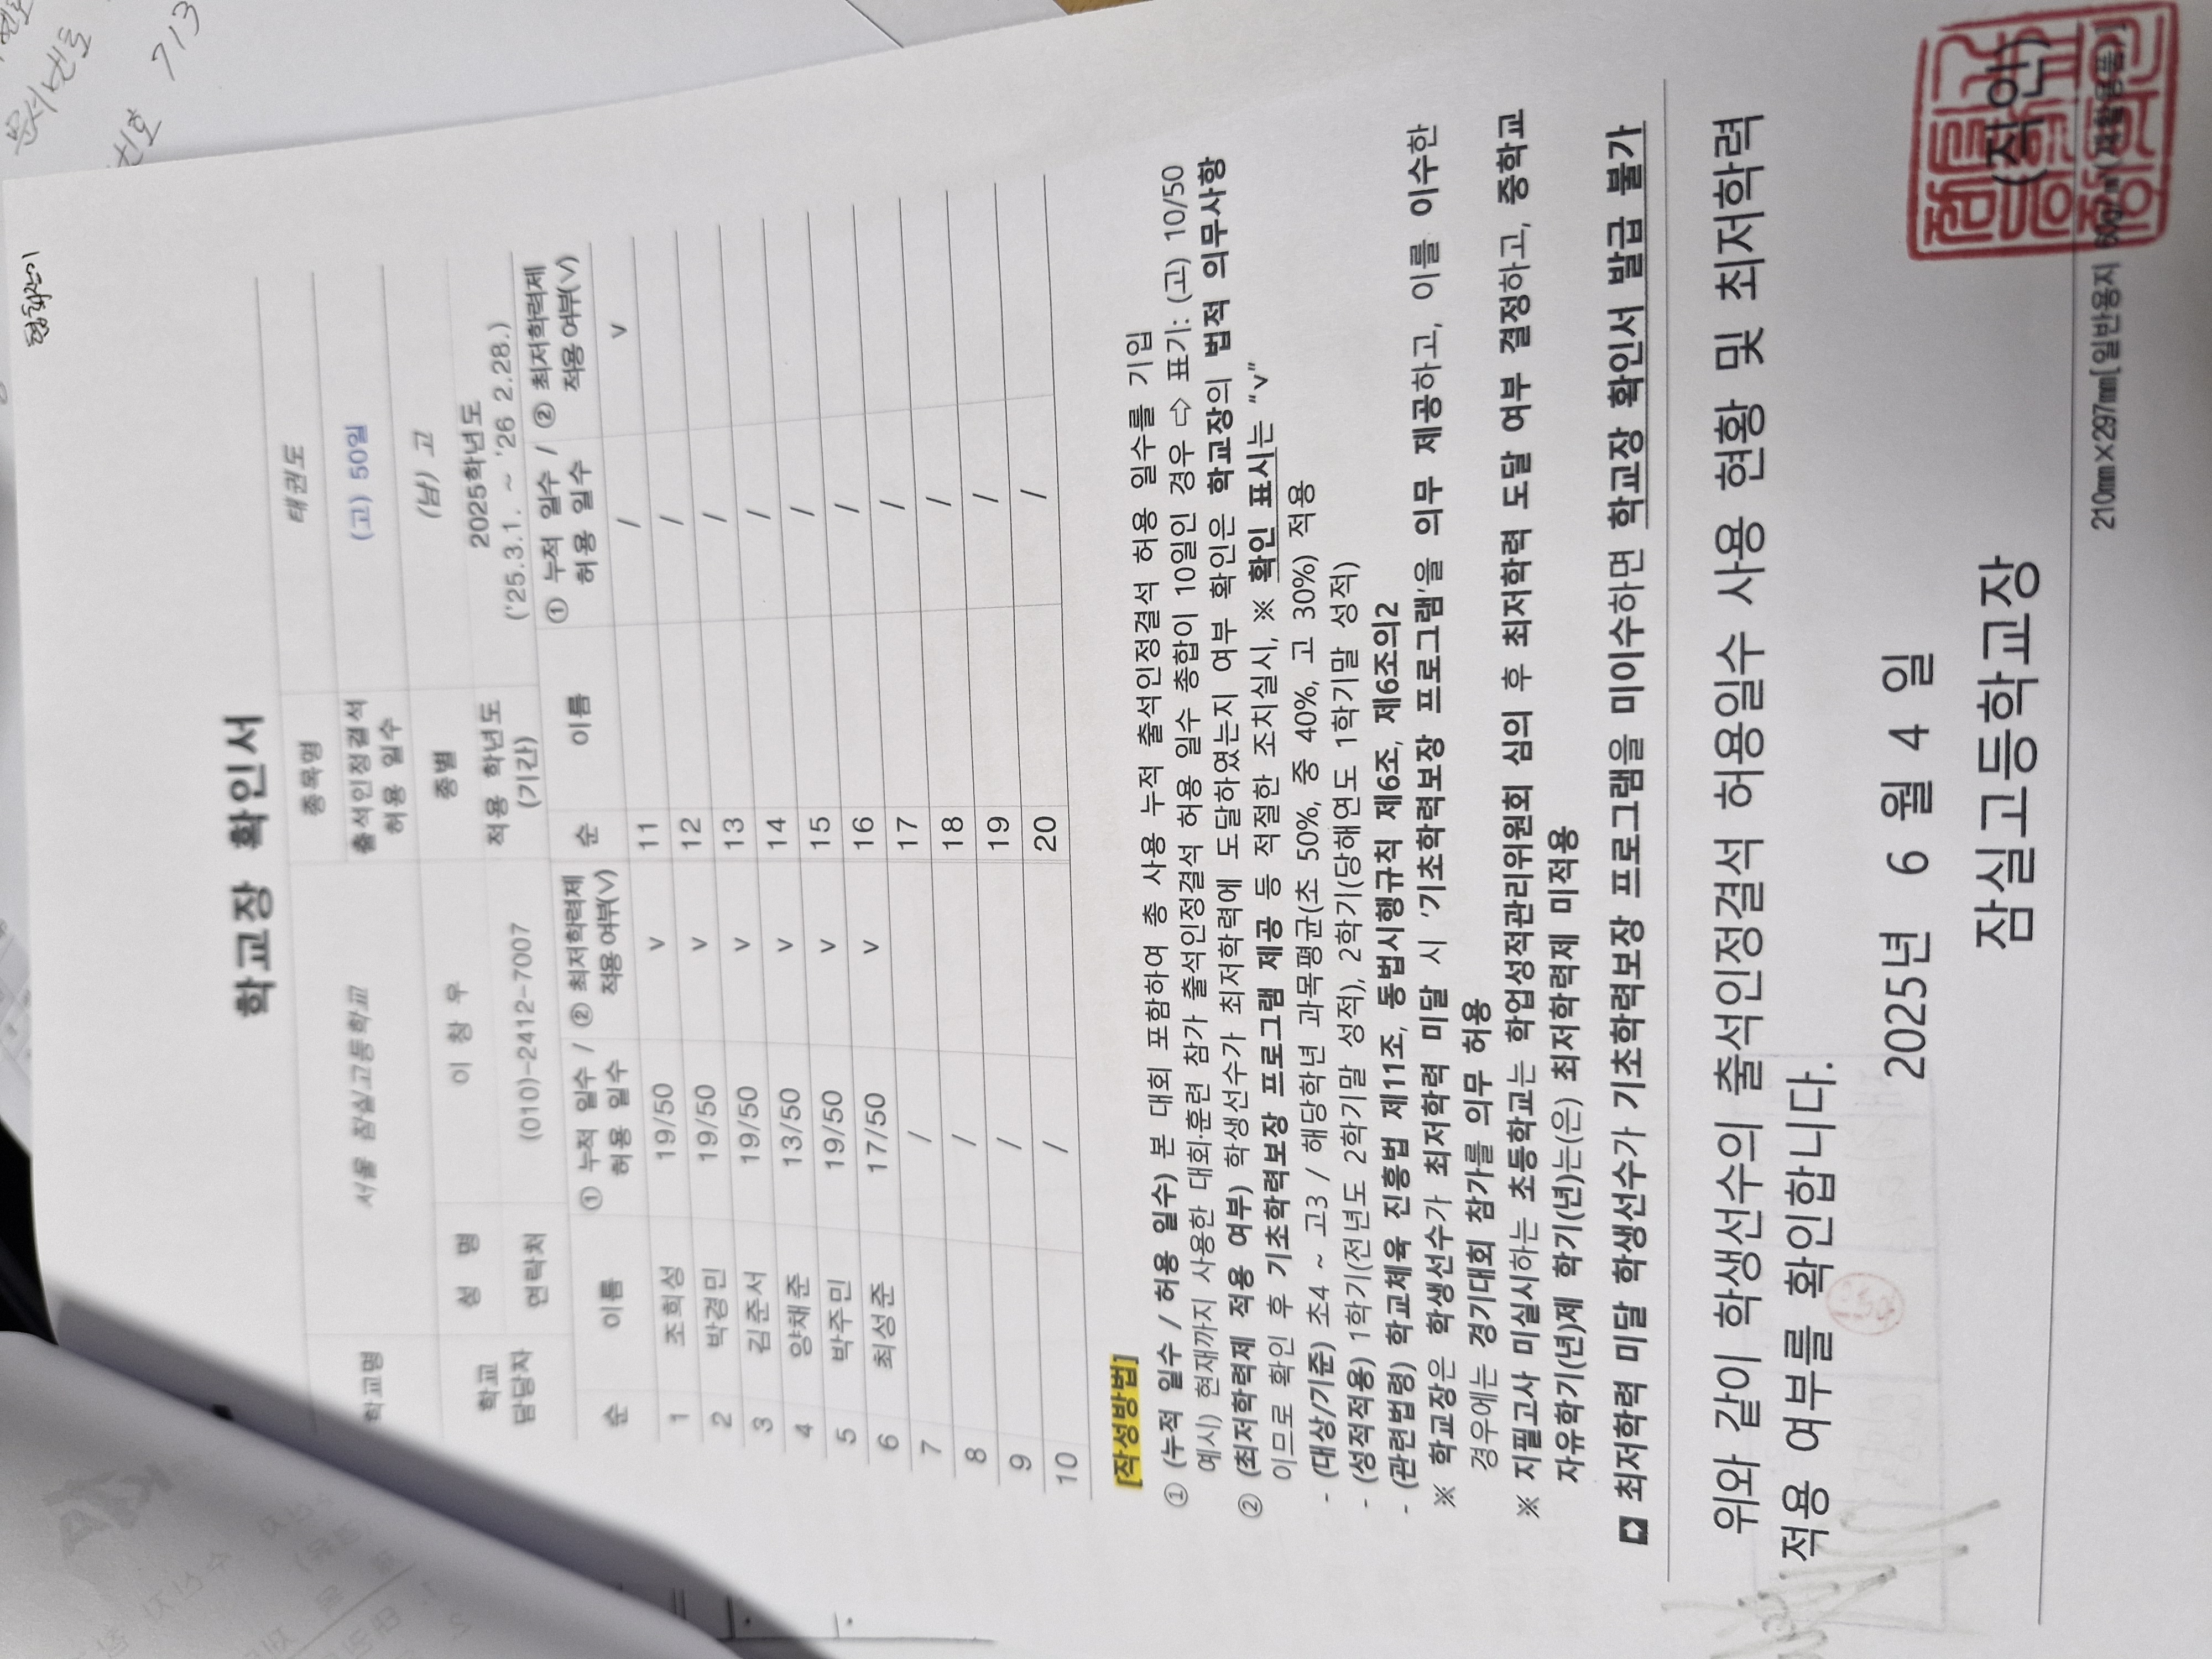 협회장기
학교장 확인서
학교명 서울 잠실고등학교 종목명 태권도
출석인정결석 허용 일수 (고) 50일
학교 담당자 성 명 이 창 우 종별 (남) 고
연락처 (010)-2412-7007 적용 학년도 (기간) 2025학년도 ('25.3.1. ~ '26 2.28.)
순 이름 ① 누적 일수 / 허용 일수 ② 최저학력제 적용 여부(V) 순 이름 ① 누적 일수 / 허용 일수 ② 최저학력제 적용 여부(V)
1 조희성 19/50 v 11 / v
2 박경민 19/50 v 12 /
3 김준서 19/50 v 13 /
4 양채준 13/50 v 14 /
5 박주민 19/50 v 15 /
6 최성준 17/50 v 16 /
7 / 17 /
8 / 18 /
9 / 19 /
10 / 20 /
[작성방법]
① (누적 일수 / 허용 일수) 본 대회 포함하여 총 사용 누적 출석인정결석 허용 일수를 기입
예시) 현재까지 사용한 대회·훈련 참가 출석인정결석 허용 일수 총합이 10일인 경우 ⇨ 표기: (고) 10/50
② (최저학력제 적용 여부) 학생선수가 최저학력에 도달하였는지 여부 확인은 학교장의 법적 의무사항
이므로 확인 후 기초학력보장 프로그램 제공 등 적절한 조치실시, ※ 확인 표시는 “v”
- (대상/기준) 초4 ~ 고3 / 해당학년 과목평균(초 50%, 중 40%, 고 30%) 적용
- (성적적용) 1학기(전년도 2학기말 성적), 2학기(당해연도 1학기말 성적)
- (관련법령) 학교체육 진흥법 제11조, 동법시행규칙 제6조, 제6조의2
※ 학교장은 학생선수가 최저학력 미달 시 '기초학력보장 프로그램'을 의무 제공하고, 이를 이수한
경우에는 경기대회 참가를 의무 허용
※ 지필고사 미실시하는 초등학교는 학업성적관리위원회 심의 후 최저학력 도달 여부 결정하고, 중학교
자유학기(년)제 학기(년)는(은) 최저학력제 미적용
최저학력 미달 학생선수가 기초학력보장 프로그램을 미이수하면 학교장 확인서 발급 불가
위와 같이 학생선수의 출석인정결석 허용일수 사용 현황 및 최저학력
적용 여부를 확인합니다.
2025년 6 월 4 일
잠실고등학교장 (직인)
210㎜×297㎜[일반용지 60g/㎡(재활용품)]
713